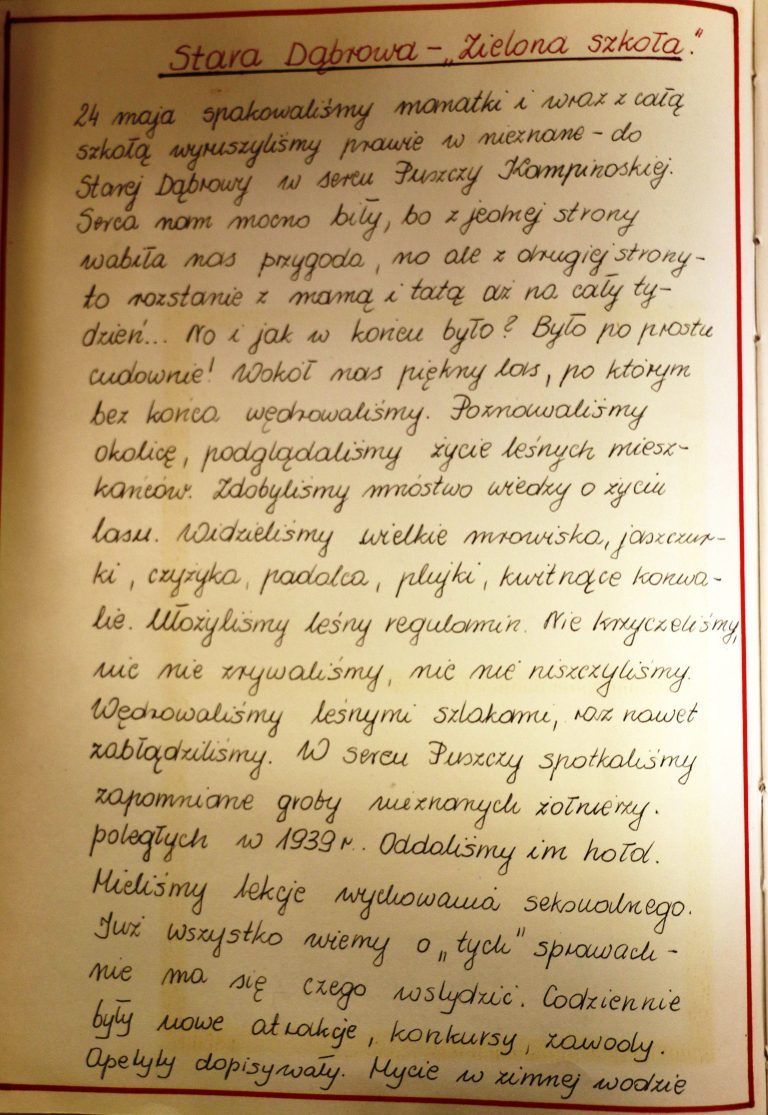 Stara Dąbrowa – „Zielona szkoła."
24 maja spakowaliśmy manatki i wraz z całą
szkołą wyruszyliśmy prawie w nieznane – do
Starej Dąbrowy w sercu Puszczy Kampinoskiej.
Serca nam mocno biły, bo z jednej strony
wabiła nas przygoda, no ale z drugiej strony –
to rozstanie z mamą i tatą aż na cały ty-
dzień... No i jak w końcu było? Było po prostu
cudownie! Wokół nas piękny las, po którym
bez końca wędrowaliśmy. Poznawaliśmy
okolicę, podglądaliśmy życie leśnych miesz-
kańców. Zdobyliśmy mnóstwo wiedzy o życiu
lasu. Widzieliśmy wielkie mrowiska, jaszczur-
ki, czyżyka, padalca, plujki, kwitnące konwa-
lie. Ułożyliśmy leśny regulamin. Nie krzyczeliśmy,
nic nie zrywaliśmy, nic nie niszczyliśmy.
Wędrowaliśmy leśnymi szlakami, raz nawet
zabłądziliśmy. W sercu Puszczy spotkaliśmy
zapomniane groby nieznanych żołnierzy.
poległych w 1939 r. Oddaliśmy im hołd.
Mieliśmy lekcje wychowania seksualnego.
Już wszystko wiemy o „tych" sprawach –
nie ma się czego wstydzić. Codziennie
były nowe atrakcje, konkursy, zawody.
Apetyty dopisywały. Mycie w zimnej wodzie